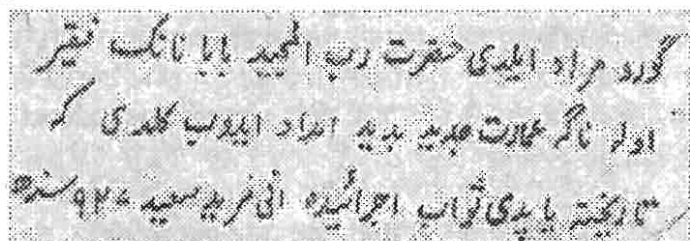 گورو مراد ایلدی حضرت رب المجید بابا نانک فقیر
اولہ تاکہ عمارت جدید امداد ایدوب کلدی کہ
یاپدی ثواب اجرائیدہ انی مرید سعید ۹۲۷ سنہ